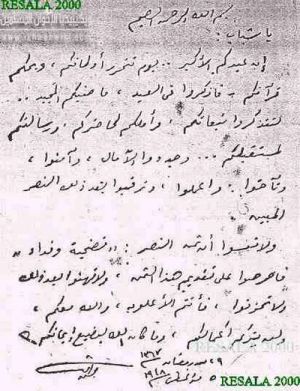 RESALA 2000
بسم الله الرحمن الرحيم
يا شباب :
إنه عيدكم الأكبر .. يوم تتحرر أوطانكم ، ويحكم
قرآنكم ، فاذكروا في العيد ، ماضيكم المجيد ...
لتتذكروا تبعاتكم ، وأملكم لحاضركم ، ورسالتكم
لمستقبلكم ... وجددوا الآمال ، وآمنوا ،
وتآخوا .. واعملوا ، وترقبوا بعد ذلك النصر
المبين .
ولا تنسوا أن ثمن النصر : " تضحية وفداء "
فاحرصوا على تقديم هذا الثمن ، ولا تهنوا بعد ذلك
ولا تحزنوا ، فأنتم الأعلون ، والله معكم ،
ولن يتركم أعمالكم ، وما كان الله ليضيع إيمانكم
٢٩ رمضان ١٣٦٧
RESALA 2000